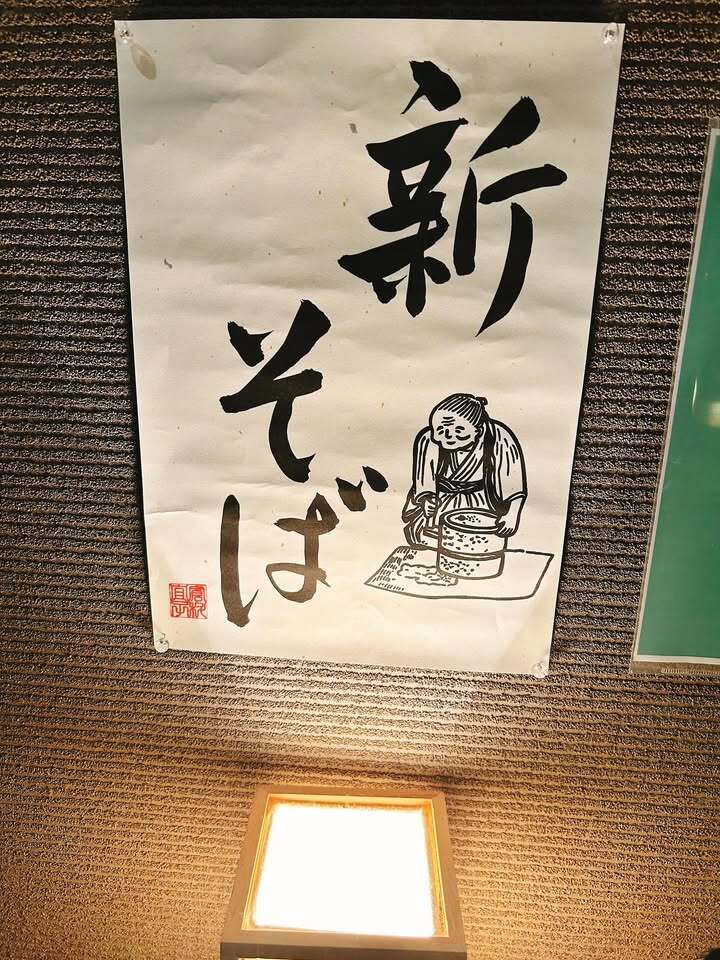 新
そば